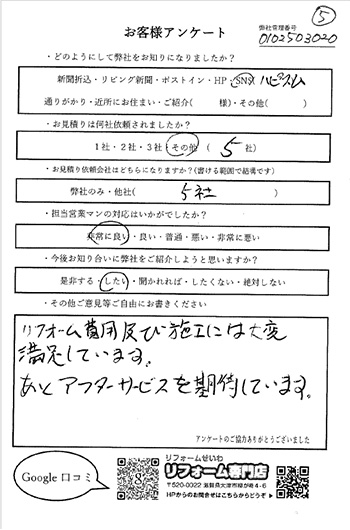 ⑤
お客様アンケート
弊社管理番号
0102503020
・どのようにして弊社をお知りになりましたか？
新聞折込・リビング新聞・ポストイン・HP・SNS ハピスム
通りがかり・近所にお住まい・ご紹介（　　様）・その他（　　）
・お見積りは何社依頼されましたか？
1社・2社・3社・その他（ 5 社）
・お見積り依頼会社はどちらになりますか？(書ける範囲で結構です)
弊社のみ・他社（ 5社 ）
・担当営業マンの対応はいかがでしたか？
非常に良い・良い・普通・悪い・非常に悪い
・今後お知り合いに弊社をご紹介しようと思いますか？
是非する・したい・聞かれれば・したくない・絶対しない
・その他ご意見等ご自由にお書きください
リフォーム費用及び施工には大変
満足しています。
あとアフターサービスを期待しています。
アンケートのご協力ありがとうございました
Google 口コミ
リフォームせいわ
リフォーム専門店
〒520-0022 滋賀県大津市柳が崎4-6
HPからのお問合せはこちらからどうぞ